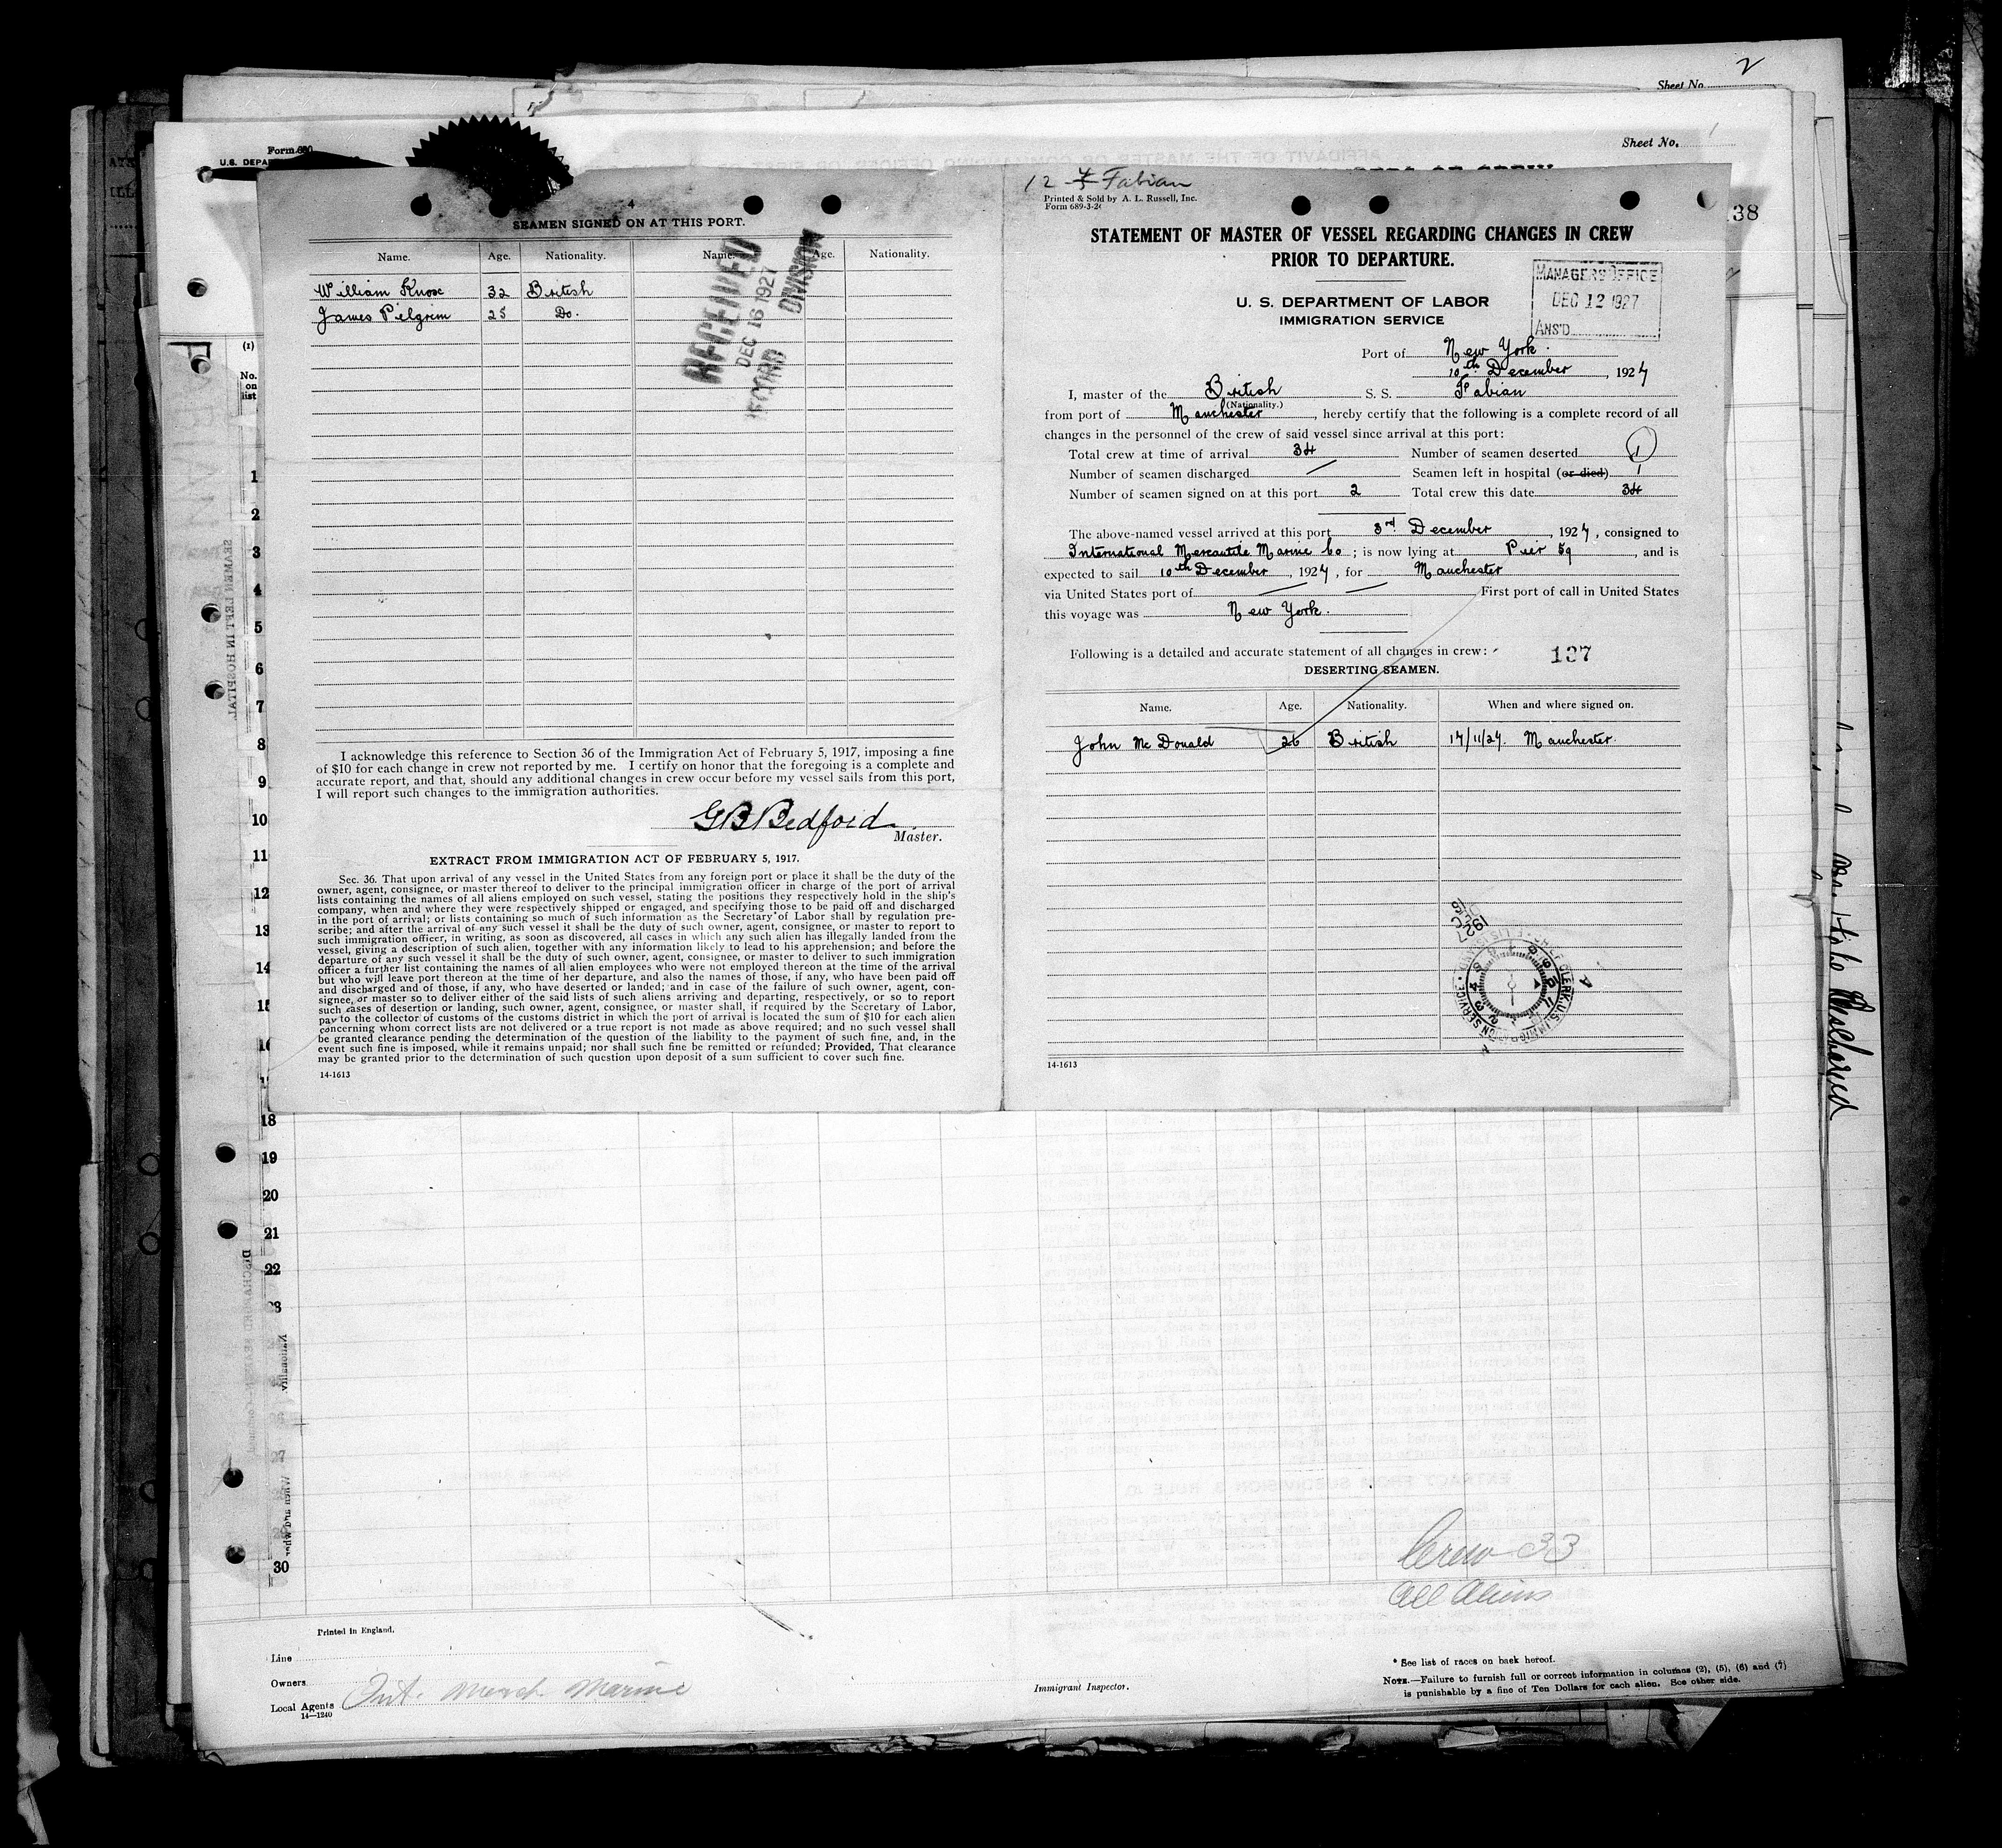 2
Sheet No.
Form 680
U.S. DEPA
Sheet No.
38
(1)
No.
on
list
4
SEAMEN SIGNED ON AT THIS PORT.
Name. Age. Nationality. Name. Age. Nationality.
William Knox 32 British
James Pilgrim 25 Do.
RECEIVED
DEC 16 1927
RECORD DIVISION
I acknowledge this reference to Section 36 of the Immigration Act of February 5, 1917, imposing a fine
of $10 for each change in crew not reported by me. I certify on honor that the foregoing is a complete and
accurate report, and that, should any additional changes in crew occur before my vessel sails from this port,
I will report such changes to the immigration authorities.
G B Bedford
Master.
EXTRACT FROM IMMIGRATION ACT OF FEBRUARY 5, 1917.
Sec. 36. That upon arrival of any vessel in the United States from any foreign port or place it shall be the duty of the
owner, agent, consignee, or master thereof to deliver to the principal immigration officer in charge of the port of arrival
lists containing the names of all aliens employed on such vessel, stating the positions they respectively hold in the ship's
company, when and where they were respectively shipped or engaged, and specifying those to be paid off and discharged
in the port of arrival; or lists containing so much of such information as the Secretary of Labor shall by regulation pre-
scribe; and after the arrival of any such vessel it shall be the duty of such owner, agent, consignee, or master to report to
such immigration officer, in writing, as soon as discovered, all cases in which any such alien has illegally landed from the
vessel, giving a description of such alien, together with any information likely to lead to his apprehension; and before the
departure of any such vessel it shall be the duty of such owner, agent, consignee, or master to deliver to such immigration
officer a further list containing the names of all alien employees who were not employed thereon at the time of the arrival
but who will leave port thereon at the time of her departure, and also the names of those, if any, who have been paid off
and discharged and of those, if any, who have deserted or landed; and in case of the failure of such owner, agent, con-
signee, or master so to deliver either of the said lists of such aliens arriving and departing, respectively, or so to report
such cases of desertion or landing, such owner, agent, consignee, or master shall, if required by the Secretary of Labor,
pay to the collector of customs of the customs district in which the port of arrival is located the sum of $10 for each alien
concerning whom correct lists are not delivered or a true report is not made as above required; and no such vessel shall
be granted clearance pending the determination of the question of the liability to the payment of such fine, and, in the
event such fine is imposed, while it remains unpaid; nor shall such fine be remitted or refunded; Provided, That clearance
may be granted prior to the determination of such question upon deposit of a sum sufficient to cover such fine.
14-1613
12 Fabian
Printed & Sold by A. L. Russell, Inc.
Form 689-3-2
STATEMENT OF MASTER OF VESSEL REGARDING CHANGES IN CREW
PRIOR TO DEPARTURE.
MANAGERS OFFICE
DEC 12 1927
ANS'D
U. S. DEPARTMENT OF LABOR
IMMIGRATION SERVICE
Port of New York.
10th December, 1927
I, master of the British S. S. Fabian
(Nationality.)
from port of Manchester, hereby certify that the following is a complete record of all
changes in the personnel of the crew of said vessel since arrival at this port:
Total crew at time of arrival 34 Number of seamen deserted 1
Number of seamen discharged / Seamen left in hospital (or died) 1
Number of seamen signed on at this port 2 Total crew this date 34
The above-named vessel arrived at this port 3rd December, 1927, consigned to
International Mercantile Marine Co; is now lying at Pier 59, and is
expected to sail 10th December, 1927, for Manchester
via United States port of First port of call in United States
this voyage was New York.
Following is a detailed and accurate statement of all changes in crew:
137
DESERTING SEAMEN.
Name. Age. Nationality. When and where signed on.
John McDonald 26 British 17/11/27. Manchester.
14-1613
1
2
3
4
5
6
7
8
9
10
11
12
13
14
15
18
19
20
21
22
26
27
30
SEAMEN LEFT IN HOSPITAL.
Nationality
Discharged
Crew 33
All Aliens
Printed in England.
Line
Owners
Local Agents Int. Merch Marine
14-1240
Immigrant Inspector.
* See list of races on back hereof.
NOTE.—Failure to furnish full or correct information in columns (2), (5), (6) and (7)
is punishable by a fine of Ten Dollars for each alien. See other side.